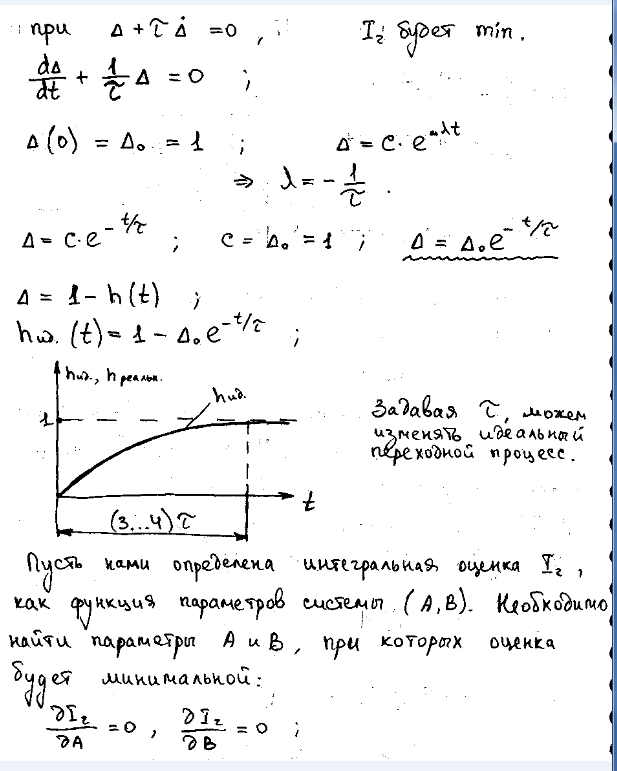 при Δ + τ Δ̇ = 0 , I₂ будет min.
dΔ/dt + 1/τ Δ = 0 ;
Δ(0) = Δ₀ = 1 ; Δ = c · e^λt
⇒ λ = - 1/τ .
Δ = c·e^-t/τ ; c = Δ₀ = 1 ; Δ = Δ₀e^-t/τ
Δ = 1 - h(t) ;
hид. (t) = 1 - Δ₀e^-t/τ ;
hид., hреальн.
hид.
1
t
(3...4)τ
Задавая τ, можем
изменять идеальный
переходной процесс.
Пусть нами определена интегральная оценка I₂,
как функция параметров системы (А,В). Необходимо
найти параметры А и В, при которых оценка
будет минимальной:
∂I₂/∂A = 0 , ∂I₂/∂B = 0 ;